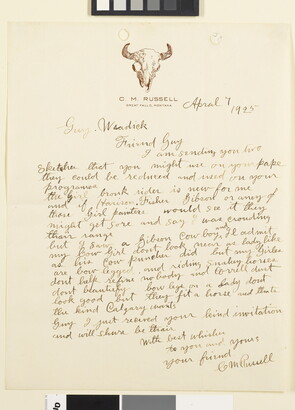 C M RUSSELL
GREAT FALLS, MONTANA
April 7 1925
Guy. Weadick
Friend Guy
I am sending you two
sketches that you might use on your pape
they could be reduced and used on your
programes
the girl bronk rider is new for me
and if Harison Fisher Gibson or any of
those Girl painters would see it they
might get sore and say I was crouding
their range
but I saw a Gibson Cow boy I'l admit
my Cow Girl dont look near as lady like
as his Cow puncher did but my Girles
are bow legged and riding snakey horses
dont help refine nobody and corrill dust
dont beautify bow legs on a Lady dont
look good but they fit a horse and thats
the kind Calgary wants
Guy I just recived your kind invitation
and will shure be thair
With best wishes
to you and yours
your friend
C M Russell